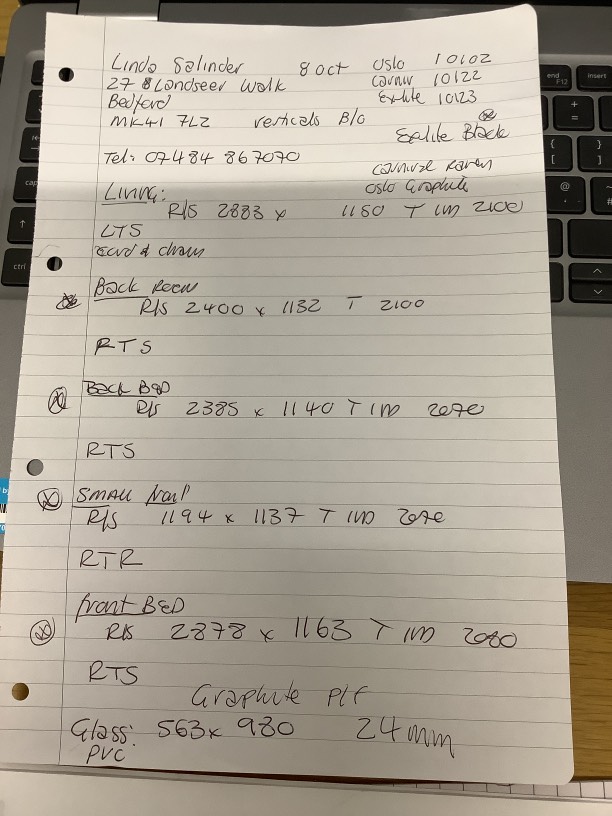 Linda Salinder 8 Oct Oslo 10102
27 Landseer Walk Carniv 10122
Bedford Exlite 10123
MK41 7LZ verticals B/O
Exlite Black
Tel: 07484 867070
Carnival Raven
Oslo Graphite
Living:
R/S 2883 x 1150 T IM 2100
LTS
Cord & chain
Back Room
R/S 2400 x 1132 T 2100
RTS
Back BED
R/S 2385 x 1140 T IM 2070
RTS
SMALL
R/S 1194 x 1137 T IM 2070
RTR
front BED
R/S 2878 x 1163 T IM 2080
RTS
Graphite
Glass: 563 x 980 24mm
PVC